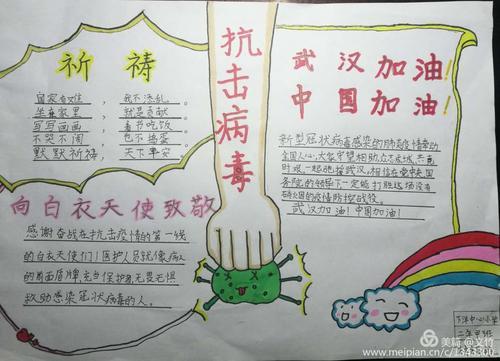 抗击病毒
祈祷
国家有难，我不添乱。
坐在家里，就是贡献。
写写画画，看书吃饭
不哭不闹，也不捣蛋
默默祈祷，天下平安
向白衣天使致敬
感谢奋战在抗击疫情的第一线
的白衣天使们！医护人员就像病人
的前面盾牌，充当保护者，无畏无惧
救助感染冠状病毒的人。
武汉加油!
中国加油!
新型冠状病毒感染的肺炎疫情牵动
全国人心，大家守望相助，众志成城，共克
时艰，一起驰援武汉，相信在党中央国
务院的领导下一定能打胜这场没有
硝烟的疫情防控战役。
武汉加油！中国加油！
下洋中心小学
二年
班
美篇 @文竹
www.meipian.cn/c/1343300